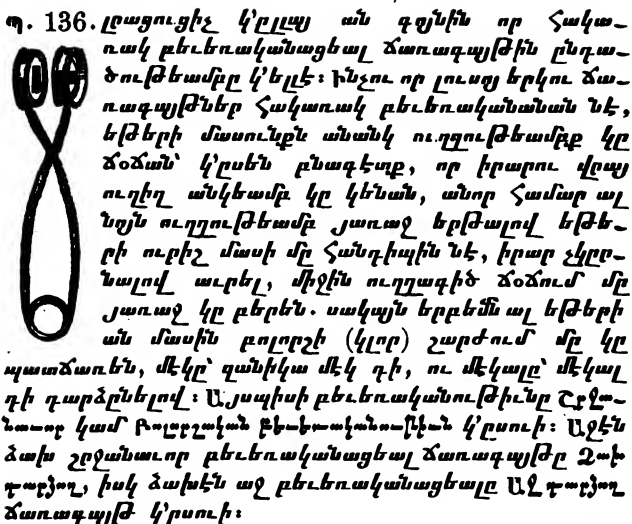 պ. 136. լրացուցիչ կ'ըլլայ ան գոյնին որ Հակա֊
ռակ բեւեռականացեալ ճառագայթին ընդա֊
ծութեամբը կ'ելլէ։ ինչու որ լուսոյ երկու ճա֊
ռագայթներ Հակառակ բեւեռականանան նէ,
եթերի մասունքն անանկ ուղղութեամբք կը
ճօճան՝ կ'ըսեն բնագէտք, որ իրարու վրայ
ուղիղ անկեամբ կը կենան, անոր Համար ալ
նոյն ուղղութեամբ յառաջ երթալով եթե֊
րի ուրիշ մասի մը Հանդիպին նէ, իրար չկըր֊
նալով աւրել, միջին ուղղագիծ ճօճում մը
յառաջ կը բերեն. սակայն երբեմն ալ եթերի
ան մասին բոլորշի (կլոր) շարժում մը կը
պատճառեն, մէկը՝ զանիկա մէկ դի, ու մէկալը՝ մէկալ
դի դարձընելով։ Այսպիսի բեւեռականութիւնը Շրջա֊
նաւոր կամ Բոլորշական բեւեռականութիւն կ'ըսուի։ Աջէն
ձախ շրջանաւոր բեւեռականացեալ ճառագայթը Ձախ
դարձող, իսկ ձախէն աջ բեւեռականացեալը Աջ դարձող
ճառագայթ կ'ըսուի։